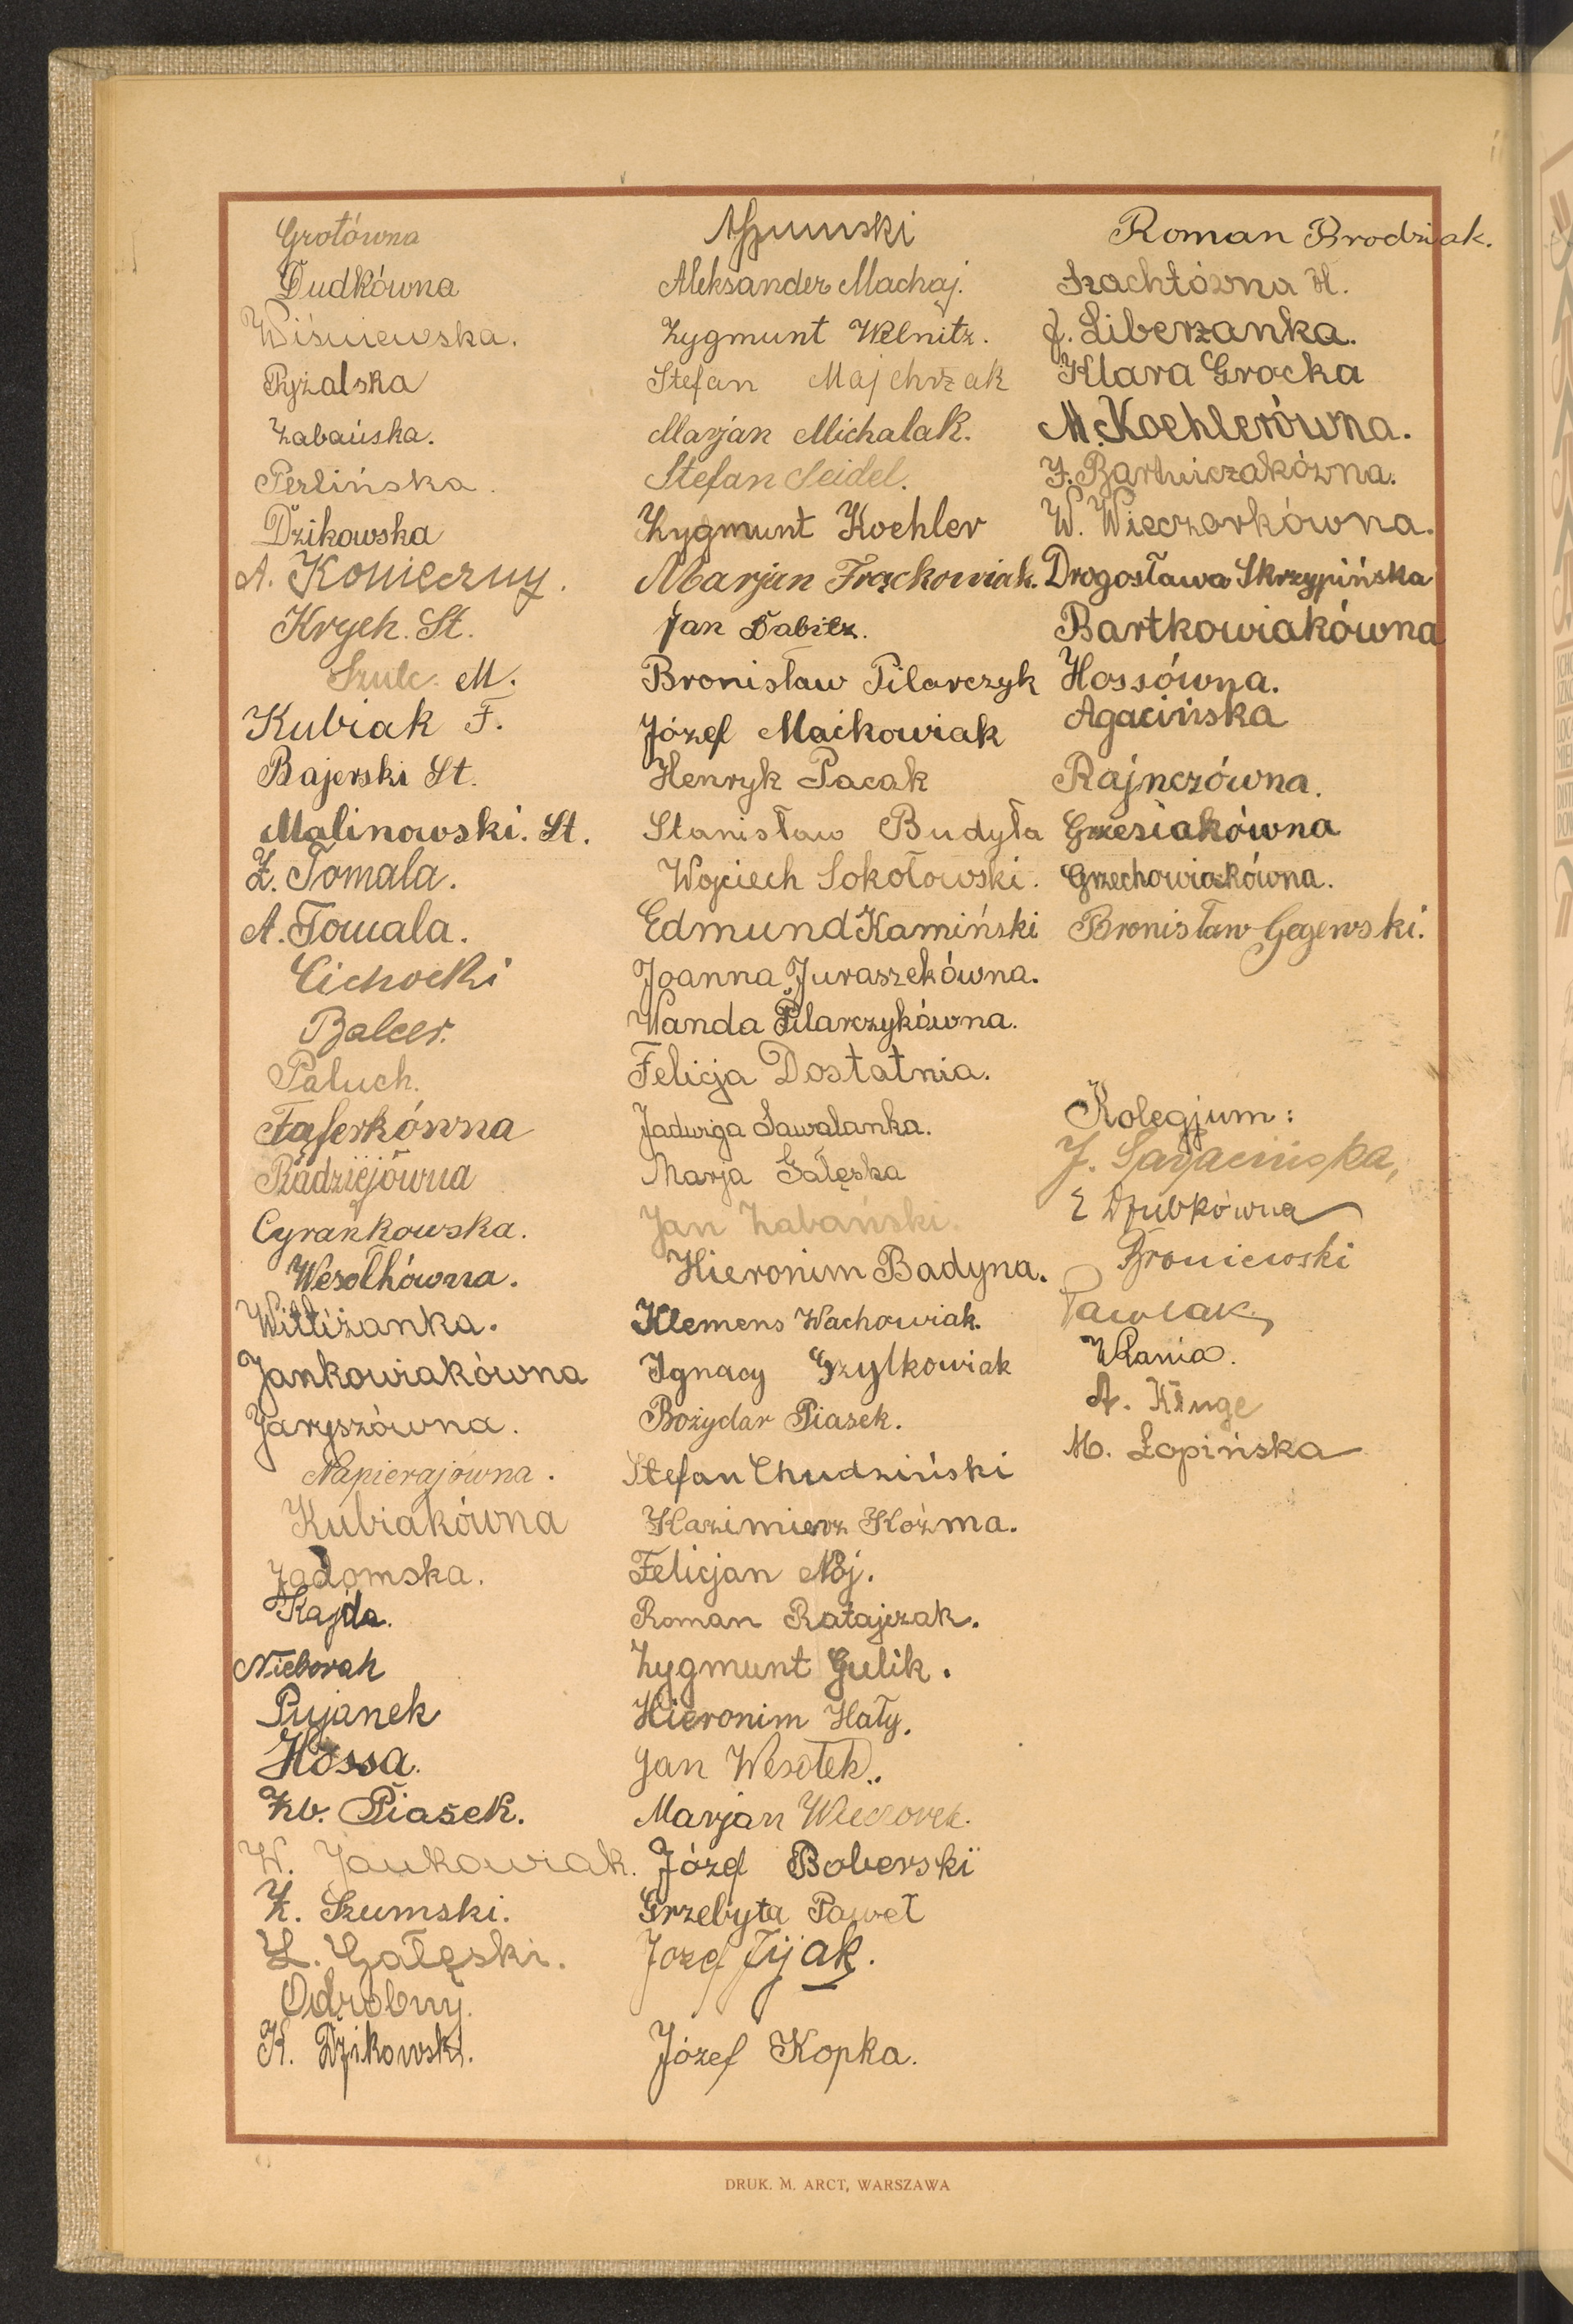 Grotówna
Dudkówna
Wiśniewska.
Ryżalska
Żabańska.
Perlińska.
Dzikowska
A. Konieczny.
Krych. St.
Szulc. M.
Kubiak F.
Bajerski St.
Malinowski. St.
Z. Tomala.
A. Tomala.
Cichocki
Balcer.
Paluch.
Faferkówna
Radziejówna
Cyrankowska.
Wesołkówna.
Wittiżanka.
Jankowiakówna
Jaryszówna.
Napierajówna.
Kubiakówna
Jadomska.
Kajda.
Nieborak
Pujanek
Hossa.
Zb. Piasek.
W. Jankowiak.
Z. Szumski.
L. Gałęski.
Odrobny.
K. Dzikowski.
Szumski
Aleksander Machaj.
Zygmunt Welnitz.
Stefan Majchrzak
Marjan Michalak.
Stefan Seidel.
Zygmunt Koehler
Marjan Frąckowiak.
Jan Babilz.
Bronisław Pilarczyk
Józef Maćkowiak
Henryk Pacak
Stanisław Budyła
Wojciech Sokołowski.
Edmund Kamiński
Joanna Juraszekówna.
Wanda Pilarczykówna.
Felicja Dostatnia.
Jadwiga Sawalanka.
Marja Gałęska
Jan Żabański.
Hieronim Badyna.
Klemens Wachowiak.
Ignacy Grzylkowiak
Bożydar Piasek.
Stefan Chudziński
Kazimierz Koźma.
Felicjan Nój.
Roman Ratajczak.
Zygmunt Gulik.
Hieronim Hały.
Jan Wesołek.
Marjan Wieczorek.
Józef Boberski
Grzebyta Paweł
Józef Fijak.
Józef Kopka.
Roman Brodziak.
Szachtówna H.
J. Liberzanka.
Klara Grocka
M. Koehlerówna.
J. Bartniczakówna.
W. Wieczorkówna.
Drogosława Skrzypińska
Bartkowiakówna
Hossówna.
Agacińska
Rajnczówna.
Grzesiakówna
Grzechowiakówna.
Bronisław Gegewski.
Kolegjum:
J. Sagacińska,
E Dziubkówna
Broniewski
Pawlak
Kania.
A. Kluge
M. Łopińska
DRUK. M. ARCT, WARSZAWA